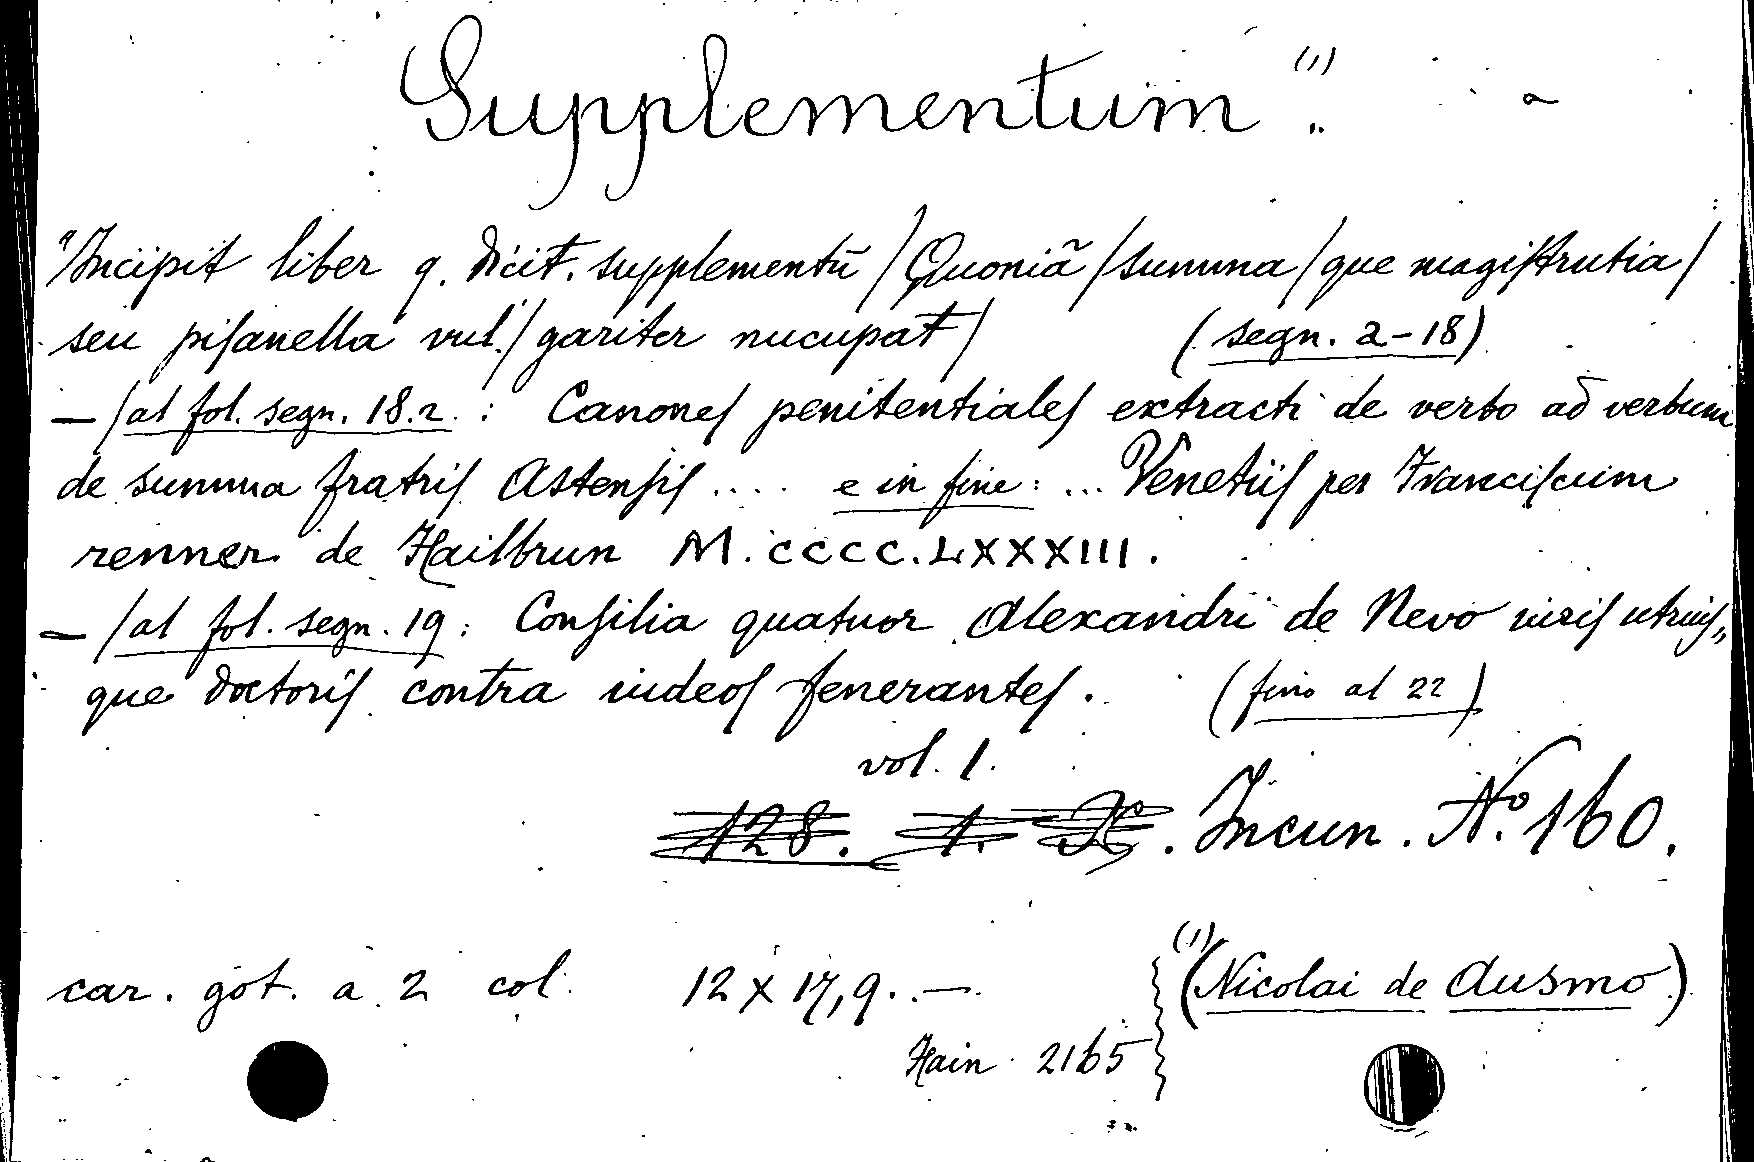 Supplementum" (1)
"Incipit liber q. dicit. supplementũ / Quoniã / summa / que magiſtrutia /
seu piſanella vul. / gariter nucupat̄ / (segn. 2-18)
— / al fol. segn. 18.2. : Canoneſ penitentialeſ extracti de verbo ad verbum
de summa fratriſ Astenſiſ .... e in fine: ... Venetiiſ per Franciſcum
renner de Hailbrun M.CCCC.LXXXIII.
— / al fol. segn. 19: Conſilia quatuor Alexandri de Nevo iuriſ utriuſ„
que doctoriſ contra iudeoſ feneranteſ. (fino al 22)
vol. 1.
128. 1. . Incun. Nº. 160.
car. got. a 2 col. 12 x 17,9. — (1) (Nicolai de Ausmo)
Hain 2165